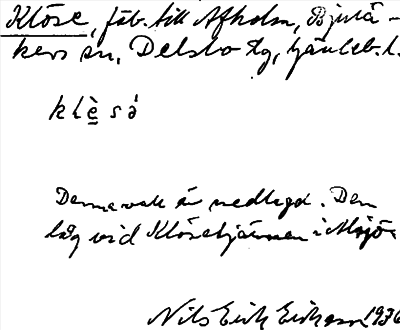 Klöse, fäb. till Afholm, Bjurå-
kers sn, Delsbo tg, Gävleb. l.
klè̱sȧ
Denna vall är nedlagd. Den
låg vid Klösetjärnen i Msjö.
Nils Erik Eriksson 1936